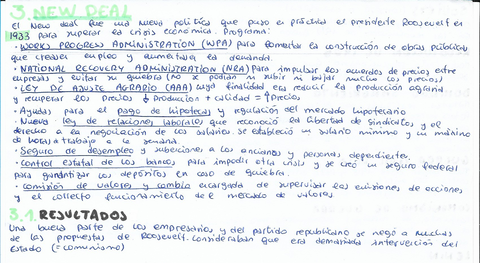 3. NEW DEAL
El New deal fue una nueva política que puso en práctica el presidente Roosevelt en
1933 para superar la crisis económica. Programa:
· WORKS PROGRESS ADMINISTRATION (WPA) para fomentar la construcción de obras públicas
que creasen empleo y aumentara la demanda.
· NATIONAL RECOVERY ADMINISTRATION (NRA) para impulsar los acuerdos de precios entre
empresas y evitar su quiebra (no se podían ni subir ni bajar mucho los precios)
· LEY DE AJUSTE AGRARIO (AAA) cuya finalidad era reducir la producción agraria
y recuperar los precios ↓ Producción + calidad = ↑ Precios
· Ayudas para el pago de hipotecas y regulación del mercado hipotecario
· Nueva ley de relaciones laborales que reconoció la libertad de sindicatos y el
derecho a la negociación de los salarios. se estableció un salario mínimo y un máximo
de horas a trabajo a la semana.
· Seguro de desempleo y subvenciones a los ancianos y personas dependientes.
· control estatal de los bancos para impedir otra crisis y se creó un seguro federal
para garantizar los depósitos en caso de quiebra.
· comisión de valores y cambio encargada de supervisar las emisiones de acciones
y el correcto funcionamiento del mercado de valores
3.1. RESULTADOS
Una buena parte de los empresarios y del partido republicano se negó a muchas
de las propuestas de Roosevelt. Consideraban que era demasiada intervención del
Estado (= comunismo)